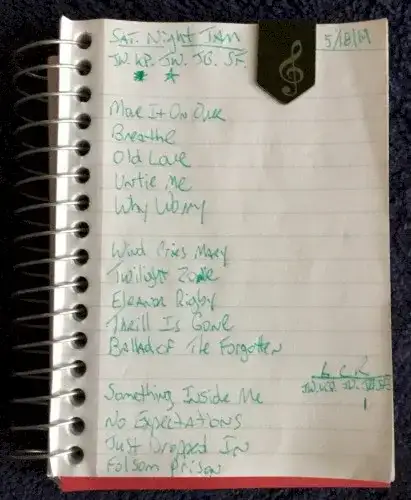 SAT. Night JAM
5/18/19
JW. KP. JW. JG. SF.
Move It On Over
Breathe
Old Love
Untie Me
Why Worry
Wind Cries Mary
Twilight Zone
Eleanor Rigby
Thrill Is Gone
Ballad of The Forgotten
L C R
JW. KP. JW.
Something Inside Me
No Expectations
Just Dropped In
Folsom Prison